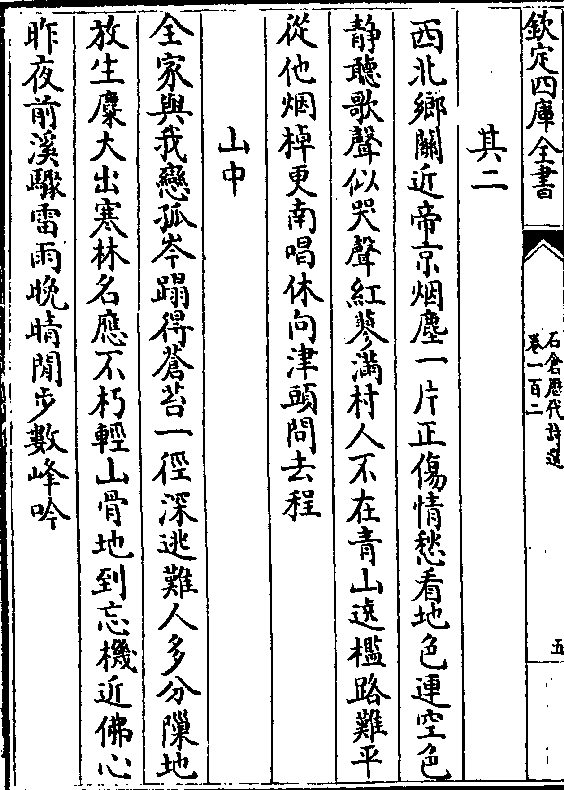 欽定四庫全書
石倉歴代詩選
卷一百二
五
其二
西北鄉關近帝京烟塵一片正傷情愁看地色連空色
静聽歌聲似哭聲紅蓼滿村人不在青山遶檻路難平
從他烟棹更南唱休向津頭問去程
山中
全家與我戀孤岑蹋得蒼苔一徑深逃難人多分隟地
放生麋大出寒林名應不朽輕山骨地到忘機近佛心
昨夜前溪驟雷雨晚晴閒步數峰吟